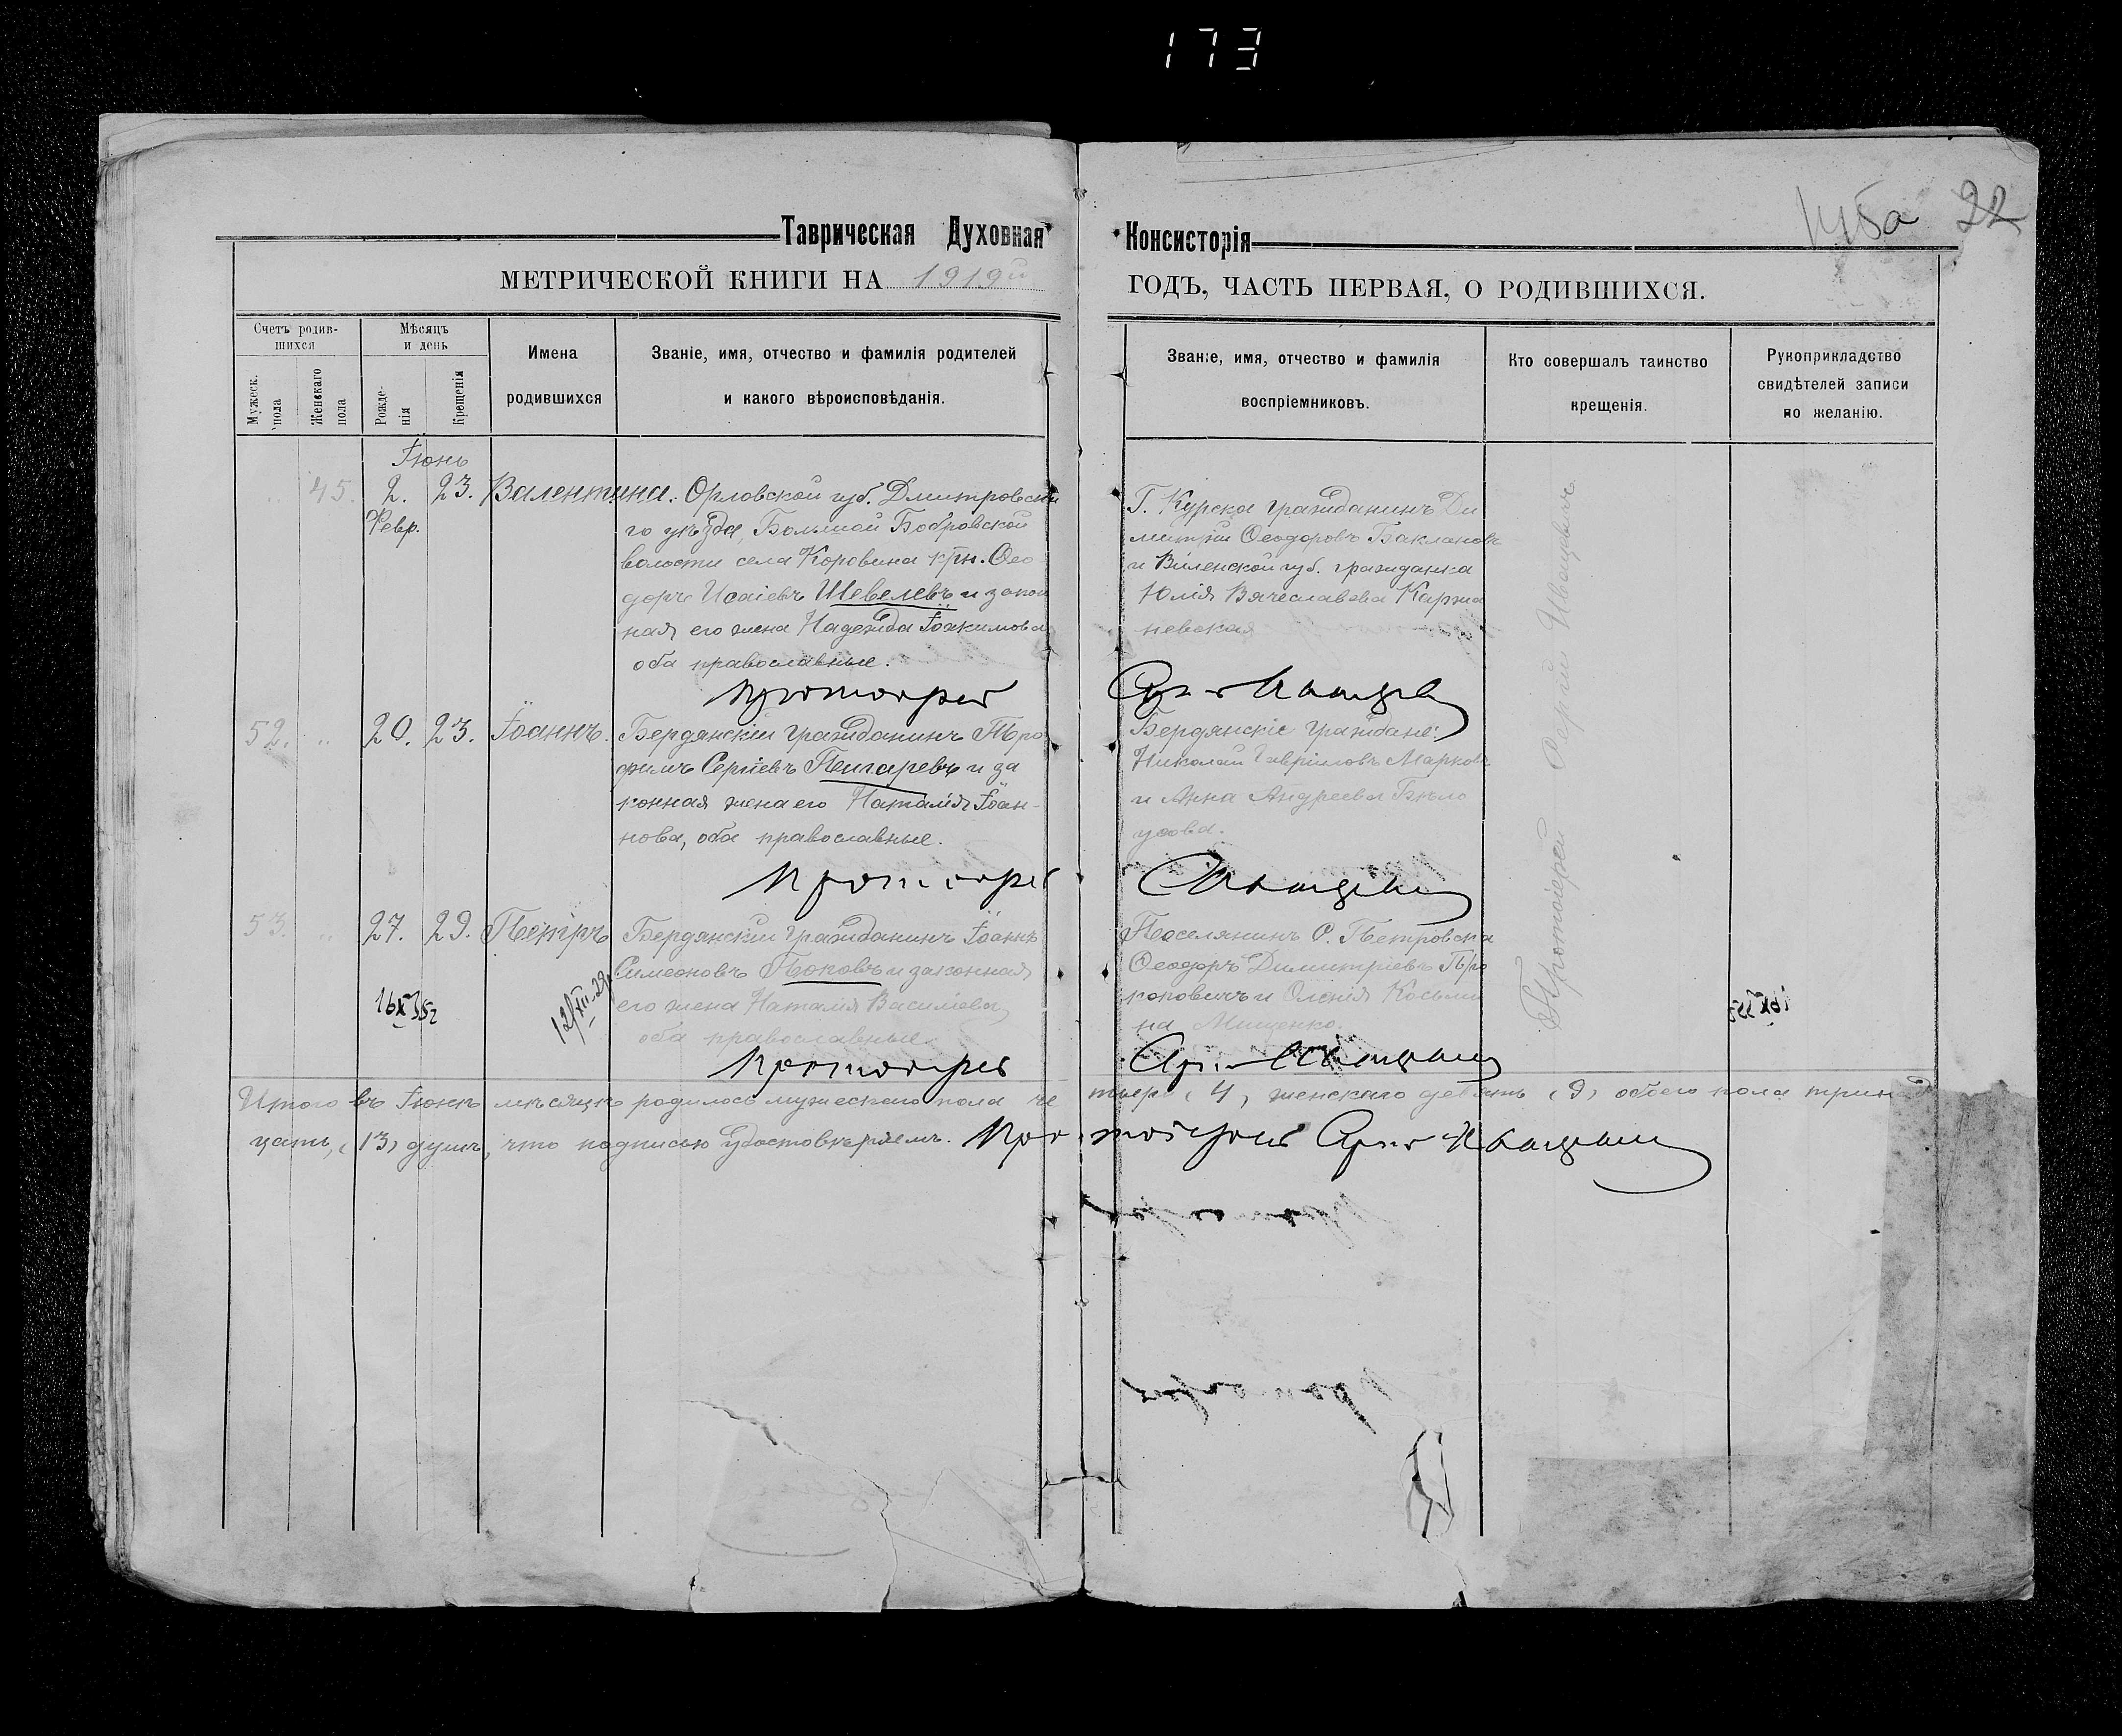 173
22
Таврическая Духовная Консисторія
МЕТРИЧЕСКОЙ КНИГИ НА 1919й ГОДЪ, ЧАСТЬ ПЕРВАЯ, О РОДИВШИХСЯ.
Счетъ родив-
шихся
Мужеск. пола
Женскаго пола
Мѣсяцъ
и день
Рожде-
нія
Крещенія
Имена
родившихся
Званіе, имя, отчество и фамилія родителей
и какого вѣроисповѣданія.
Званіе, имя, отчество и фамилія
воспріемниковъ.
Кто совершалъ таинство
крещенія.
Рукоприкладство
свидѣтелей записи
по желанію.
Іюнь
45. 2. 23. Валентина. Орловской губ. Дмитровска
Февр.
го уѣзда, Большой Бобровской
волости села Коровина крн. Ѳео
доръ Исаіевъ Шевелевъ и закон
ная его жена Надежда Іоакимова
оба православные.
Протоіерей
Г. Курска гражданинъ Ди
митрій Ѳеодоровъ Баклановъ
и Виленской губ. гражданка
Юлія Вячеславова Каржа
невская
52. 20. 23. Іоаннъ. Бердянскій гражданинъ Тро
фимъ Сергіевъ Пигаревъ и за
конная жена его Наталія Іоан-
нова, оба православные.
Протоіерей
Бердянскіе граждане:
Николай Гавриловъ Марковъ
и Анна Андреева Бѣло
усова.
53. 27. 29. Петръ Бердянскій гражданинъ Іоаннъ
Симеоновъ Поповъ и законная
его жена Наталія Васильева
оба православные.
Протоіерей
Поселянинъ С. Петровска
Ѳеодоръ Димитріевъ Про
коповичъ и Ксенія Косьми
на Мищенко.
Протоіерей Сергій Иващевичъ
12/XII-29
16 X 35г
Итого въ Іюнѣ мѣсяцѣ родилось мужескаго пола че тыре (4), женскаго девять (9) обоего пола трина
цать, (13) душъ, что подписью удостовѣряемъ. Протоіерей